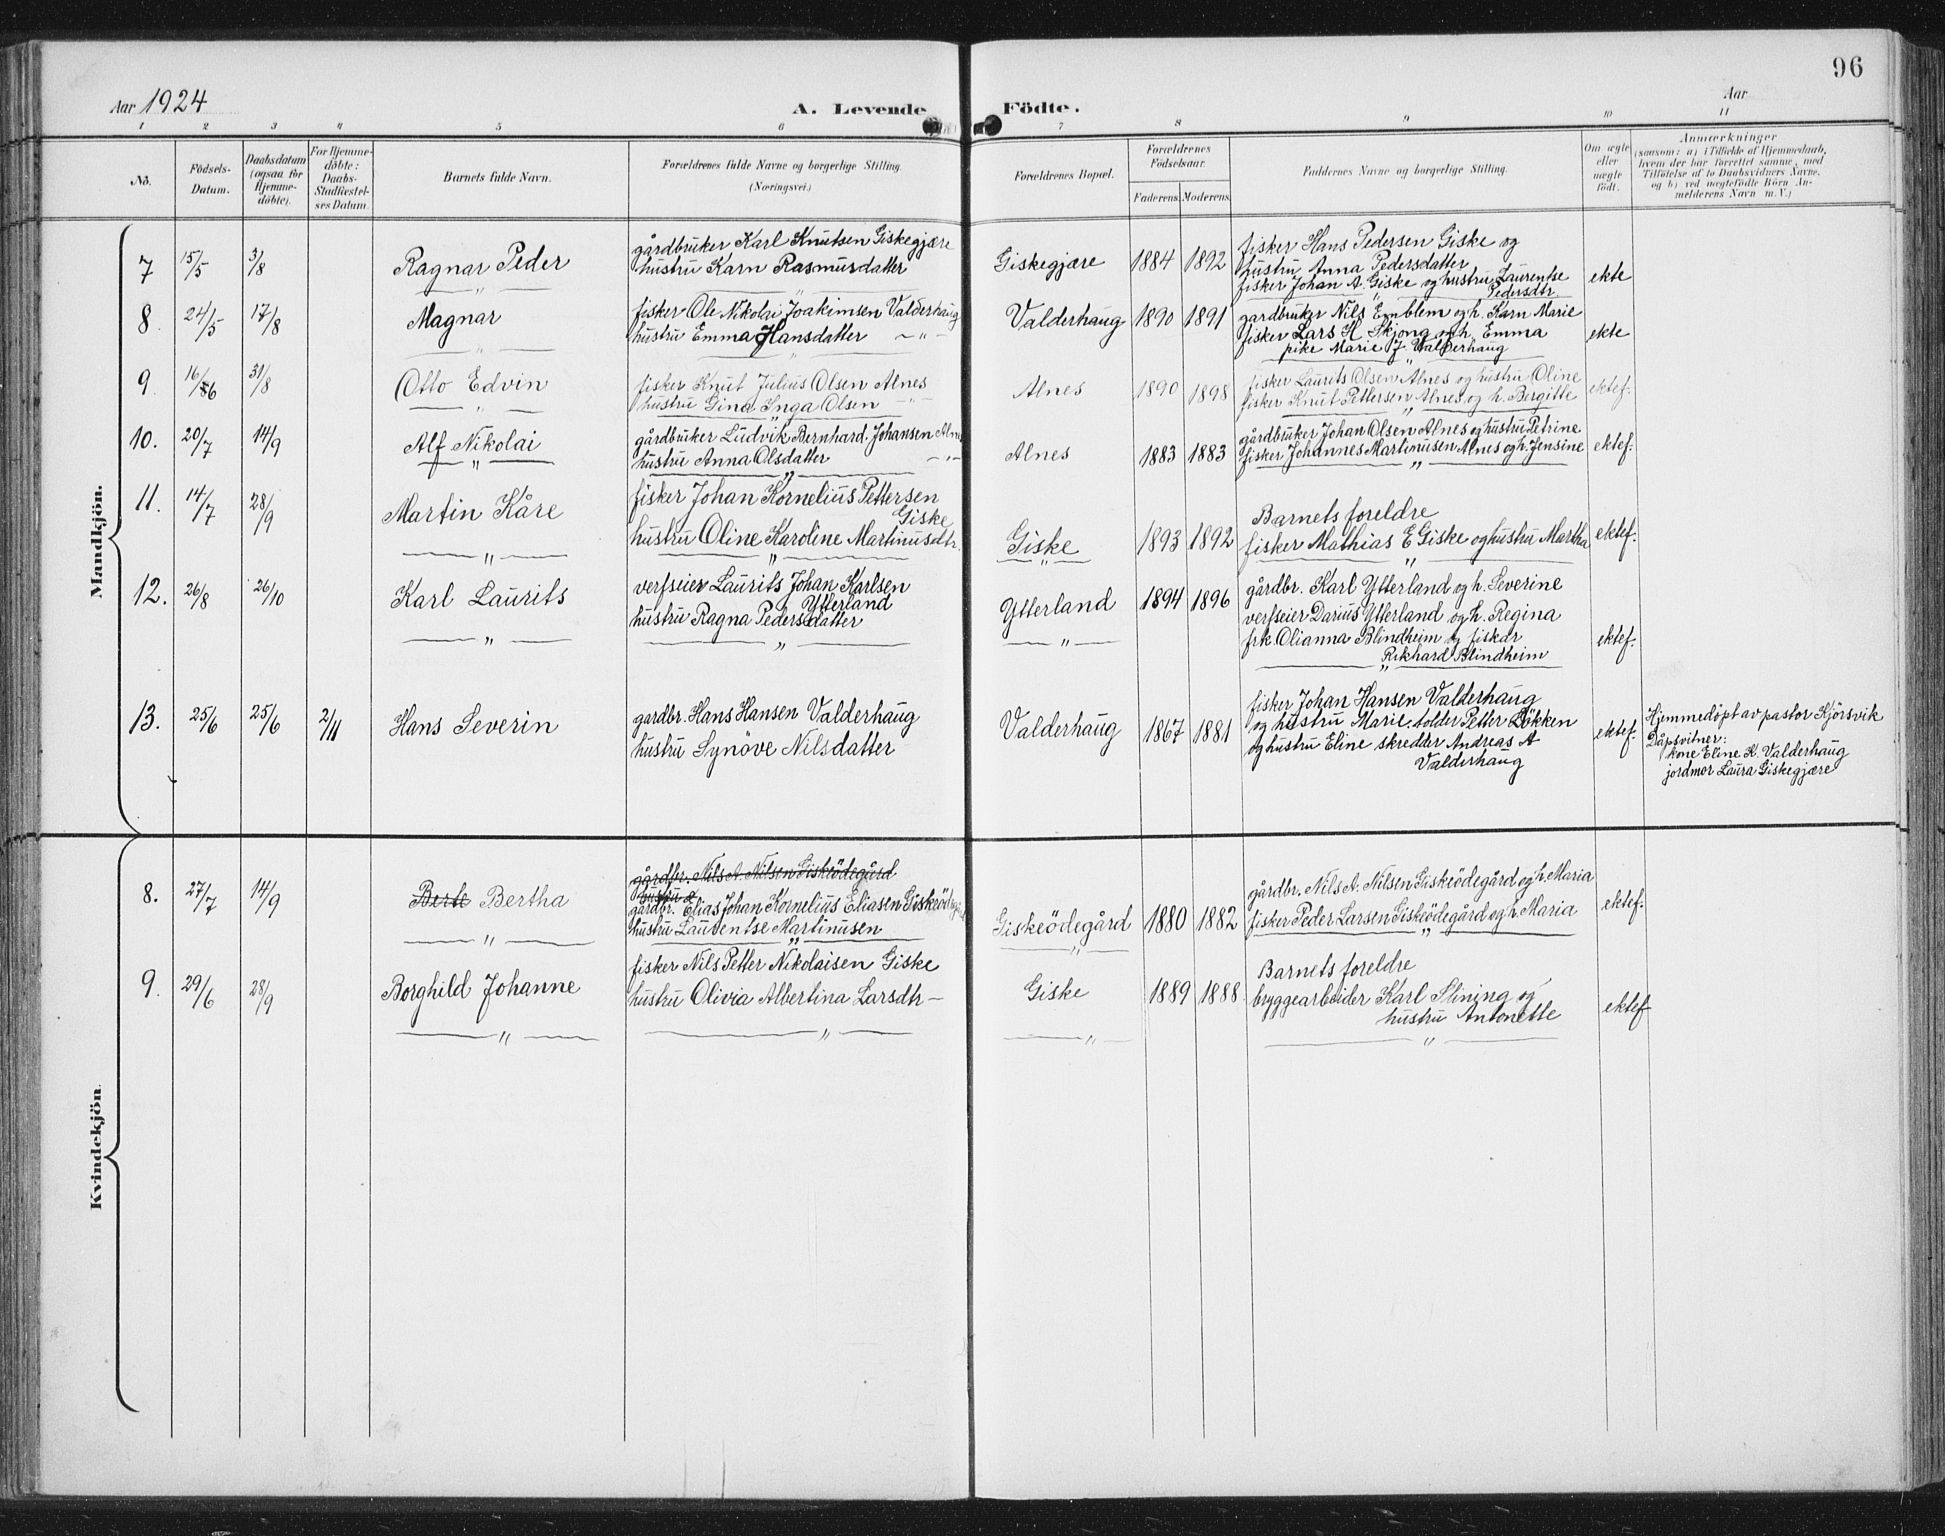 96
Aar 1924
A. Levende Födte.
Aar
1 2 3 4 5 6 7 8 9 10 11
No.
Födsels-Datum.
Daabsdatum (ogsaa for Hjemme-döbte).
For Hjemme-döbte: Daabs-Stadfæstel-ses Datum.
Barnets fulde Navn.
Forældrenes fulde Navne og borgerlige Stilling.
(Næringsvei.)
Forældrenes Bopæl.
Forældrenes Födselsaar.
Faderens. Moderens.
Faddernes Navne og borgerlige Stilling.
Om ægte eller uægte födt.
Anmærkninger
(saasom: a) i Tilfælde af Hjemmedaab,
hvem der har forrettet samme, med
Tilföielse af to Daabsvidners Navne,
og b) ved uægtefödte Börn An-
melderens Navn m. V.)
Mandkjön.
7 15/5 3/8 Ragnar Peder
gårdbruker Karl Knutsen Giskegjære
hustru Karn Rasmusdatter
Giskegjære 1884 1892
fisker Hans Pedersen Giske og
hustru Anna Pedersdatter
fisker Johan A Giske og hustru Laurentse
Pedersdtr
ekte
8. 24/5 17/8 Magnar
fisker Ole Nikolai Joakimsen Valderhaug
hustru Emma Hansdatter — " —
Valderhaug 1890 1891
gardbruker Nils Emblem og h. Karn Marie
fisker Lars H Skjong og h. Emma
pike Marie J. Valderhaug
ekte
9. 16/6 31/8 Otto Edvin
fisker Knut Julius Olsen Alnes
hustru Gina Inga Olsen — " —
Alnes 1890 1898
fisker Laurits Olsen Alnes og hustru Oline
fisker Knut Pettersen Alnes og h. Bergitte
ektef.
10. 20/7 14/9 Alf Nikolai
gårdbruker Ludvik Bernhard Johansen Alne
hustru Anna Olsdatter — " —
Alnes 1883 1883
gårdbruker Johan Olsen Alnes og hustru Petrine
fisker Johannes Martinusen Alnes og h. Jensine
ektef.
11. 14/7 28/9 Martin Kåre
fisker Johan Kornelius Pettersen
Giske
hustru Oline Karoline Martinusdtr.
Giske 1893 1892
Barnets foreldre
fisker Mathias E Giske og hustru Martha
ektef.
12. 26/8 26/10 Karl Laurits
verfseier Laurits Johan Karlsen
Ytterland
hustru Ragna Pedersdatter
Ytterland 1894 1896
gårdbr. Karl Ytterland og h. Severine
verfseier Darius Ytterland og h. Regina
frk. Olianna Blindheim og fisker
Rikhard Blindheim
ektef.
13. 25/6 25/6 2/11 Hans Severin
gardbr. Hans Hansen Valderhaug
hustru Synöve Nilsdatter
Valderhaug 1867 1881
fisker Johan Hansen Valderhaug
og hustru Marie, tolder Petter Lökken
og hustru Eline skredder Andreas A
Valderhaug
ektef.
Hjemmedöpt av pastor Kjörsvik
Dåpsvitner:
kone Eline K. Valderhaug
jordmor Laura Giskegjære
Kvindekjön
8. 27/7 14/9 Berte Bertha
gårdbr. Nils A. Nilsen Giskeödegård
hustru
gårdbr. Elias Johan Kornelius Eliasen Giskeödegård
hustru Laurentse Martinusen
Giskeödegård 1880 1882
gårdbr. Nils A. Nilsen Giskeödegård og h. Maria
fisker Peder Larsen Giskeödegård og h. Maria
ektef.
9. 29/6 28/9 Borghild Johanne
fisker Nils Petter Nikolaisen Giske
hustru Olivia Albertina Larsdtr —
Giske 1889 1888
Barnets foreldre
bryggearbeider Karl Slining og
hustru Antonette
ektef